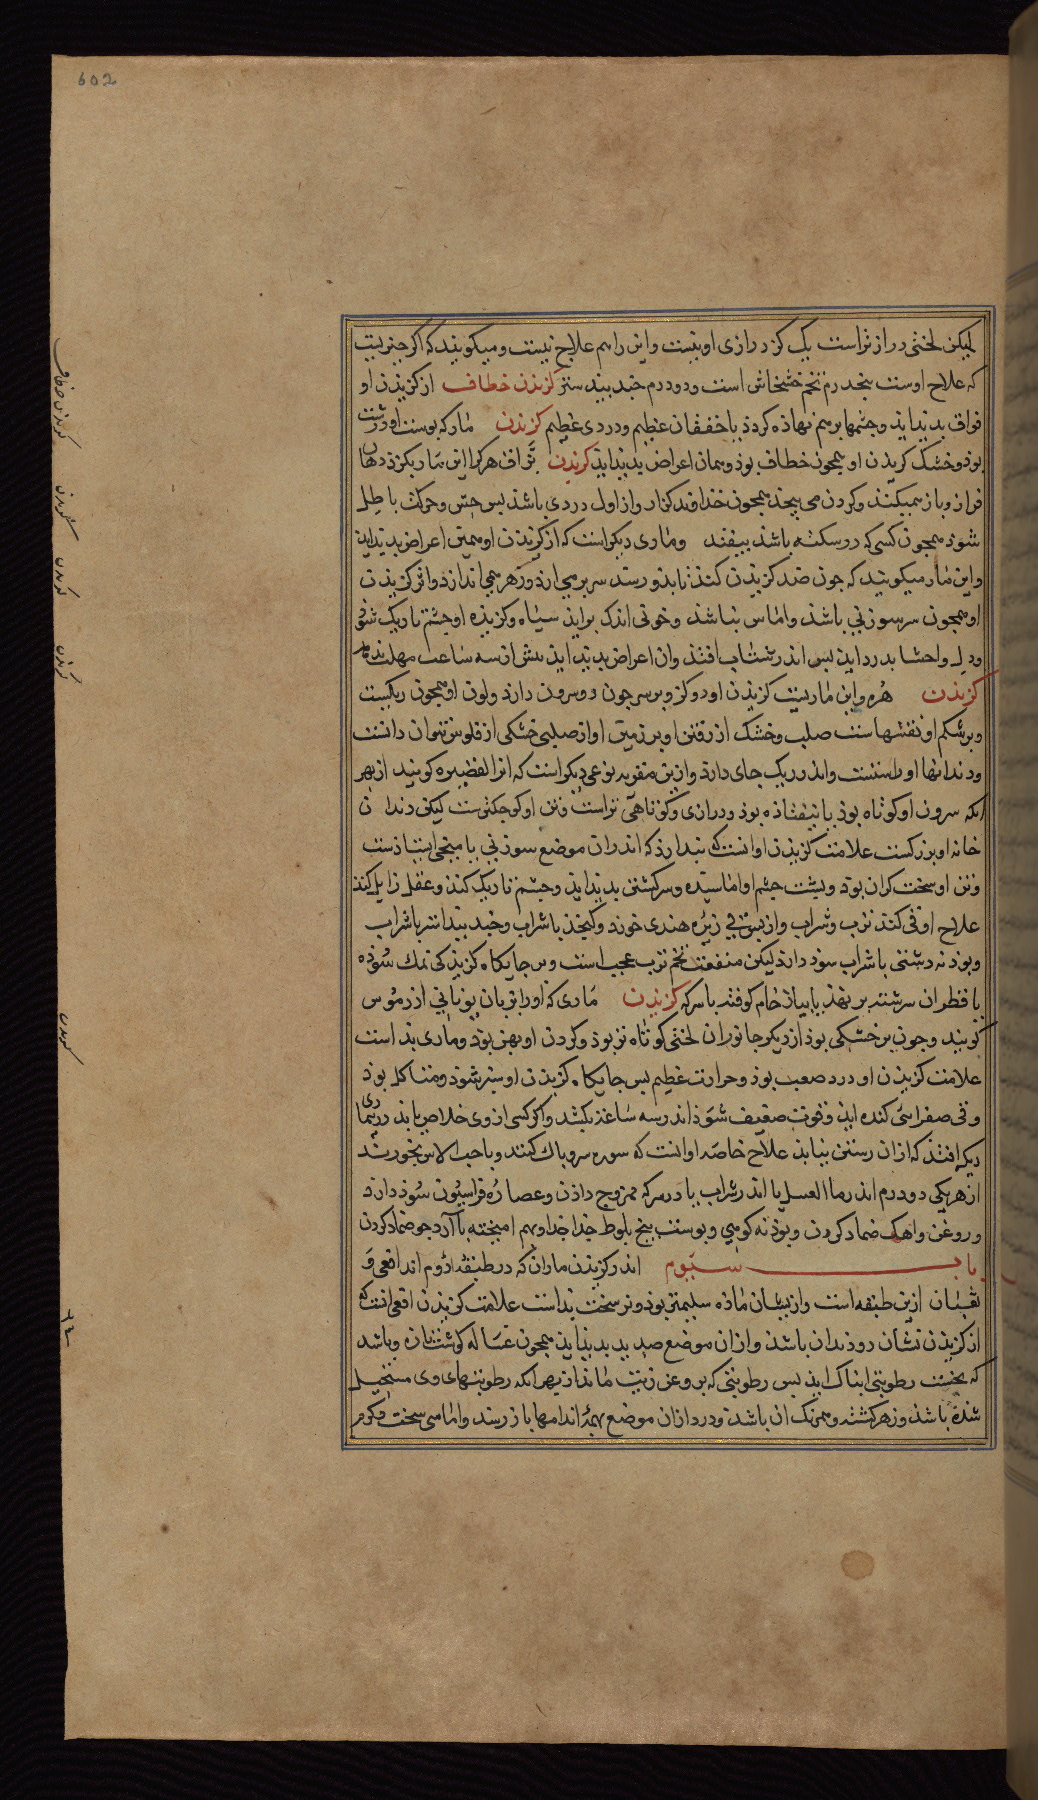 602
لیکن لختی دراز تر است یک گز درازی او بیست و این را هم علاج نیست و میکویند که اکر چیزیست
که علاج اوست پنجدرم تخم خشخاش است و دو درم جند بیدستر کزیذن خطاف از کزیذن او
فواق بدیذ ایذ و چشمها بر هم نهاذه کردذ با خفقان عظیم و دردی عظیم کزیذن مار که بوست او درشت
بوذ و خشک کزیذن او همچون خطاف بوذ و همان اعراض بدیذ ایذ کزیذن بزاق هرکرا این مار بکزذ دهان
فراز و باز همیکند و کردن می پیچذ همچون خداوند کزاز و از اول دردی باشذ بس حس و حرکت باطل
شوذ همچون کسی که در سکته باشذ بیفتد و ماری دیکر است که از کزیذن او همین اعراض بدیذ ایذ
و این مار میکویند که چون قصد کزیذن کند تا بذو رسد سر بر می ارذ و زهر می اندازذ و اثر کزیذن
او همچون سر سوزنی باشذ و اماس نباشذ و خونی اندک براید سیاه و کزیذه او چشم تاریک شوذ
و دل و احشا بدرد ایذ بس اندر شتاب افتذ و ان اعراض بدیذ ایذ بیش از سه ساعت مهلت ندهد
کزیذن هره و این ماریست کزیذن او دو کز و بر سر چون دو سرون دارد و لون او همچون ریکست
و بر شکم او نقشهاست صلب و خشک از رفتن او بر زمین اواز صلبی خشکی از فلوس بتوان دانست
و دندانها او راستست و اندر ریک جای دارد و ازین مقربه نوعی دیکر است که انرا لقضیره کویند از بهر
انکه سرون او کوتاه بوذ یا نیفتاذه بوذ و درازی و کوتاهی تراست و تن او کوچکترست لیکن دندان
خانه او بزرکست علامت کزیذن او انست که بندارذ که اندر ان موضع سوزنی یا میخی ایستاذست
و تن او سخت کران بوذ و پشت چشم او اماسیذه و سرکشتن بدیذ ایذ و چشم تاریک کند و عقل زایل کند
علاج او قی کند بترب و شراب و از پس قی زیره هندی خورد و کنجد با شراب و جند بیدستر با شراب
و بوذنه دشتی با شراب سوذ دارد لیکن منفعت تخم ترب عجب است و بر جایکاه کزیذکی نمک سوذه
با قطران سرشته بر نهند یا پیاز خام کوفته با سرکه کزیذن ماری که او را بزبان یونانی اذرموس
کویند و چون بر خشکی بوذ از دیکر جانوران لختی کوتاه تر بوذ و کردن او پهن بوذ و ماری بد است
علامت کزیذن او درد صعب بوذ و حرارت عظیم پس جایکاه کزیذن او سبز شوذ و متاکل بوذ
و قی صفرایی کنده ایذ و قوت ضعیف شوذ اندر سه ساعت بکشد و اکر کسی از وی خلاص یابد در بیماری
دیکر افتذ که از ان رستن نیابذ علاج خاصه او انست که سوره سرو پاک کنند و با حب الاس بخورند
از هر یکی دو درم اندر ماء العسل یا اندر شراب یا در سرکه ممزوج داذن و عصاره فراسیون سوذ دارد
و روغن و اهک ضماد کردن و بوذنه کوهی و بوست بیخ بلوط جذا جذا و بهم امیخته با آرد جو ضماد کردن
باب سیوم اندر کزیذن ماران که در طبقه دوم اند افعی و
ثعبان ازین طبقه است و از بیشان ماذه سلیمتر بوذ و نر سخت بد است علامت کزیذن افعی انست که
از کزیذن نشان دو دندان باشذ و از ان موضع صدید بدیذ ایذ همچون غساله کوشت تازه و باشد
که نخست رطوبتی ابناک ایذ پس رطوبتی که بروغن زیت ماند از بهر انکه رطوبتهای وی مستحیل
شذه باشذ و زهر کشته و همرنک ان باشذ و درد از ان موضع بهمه اندامها باز رسد و اماسی سخت و کرم
کزیدن خطاف
کزیدن
کزیدن
کزیدن
کزیدن